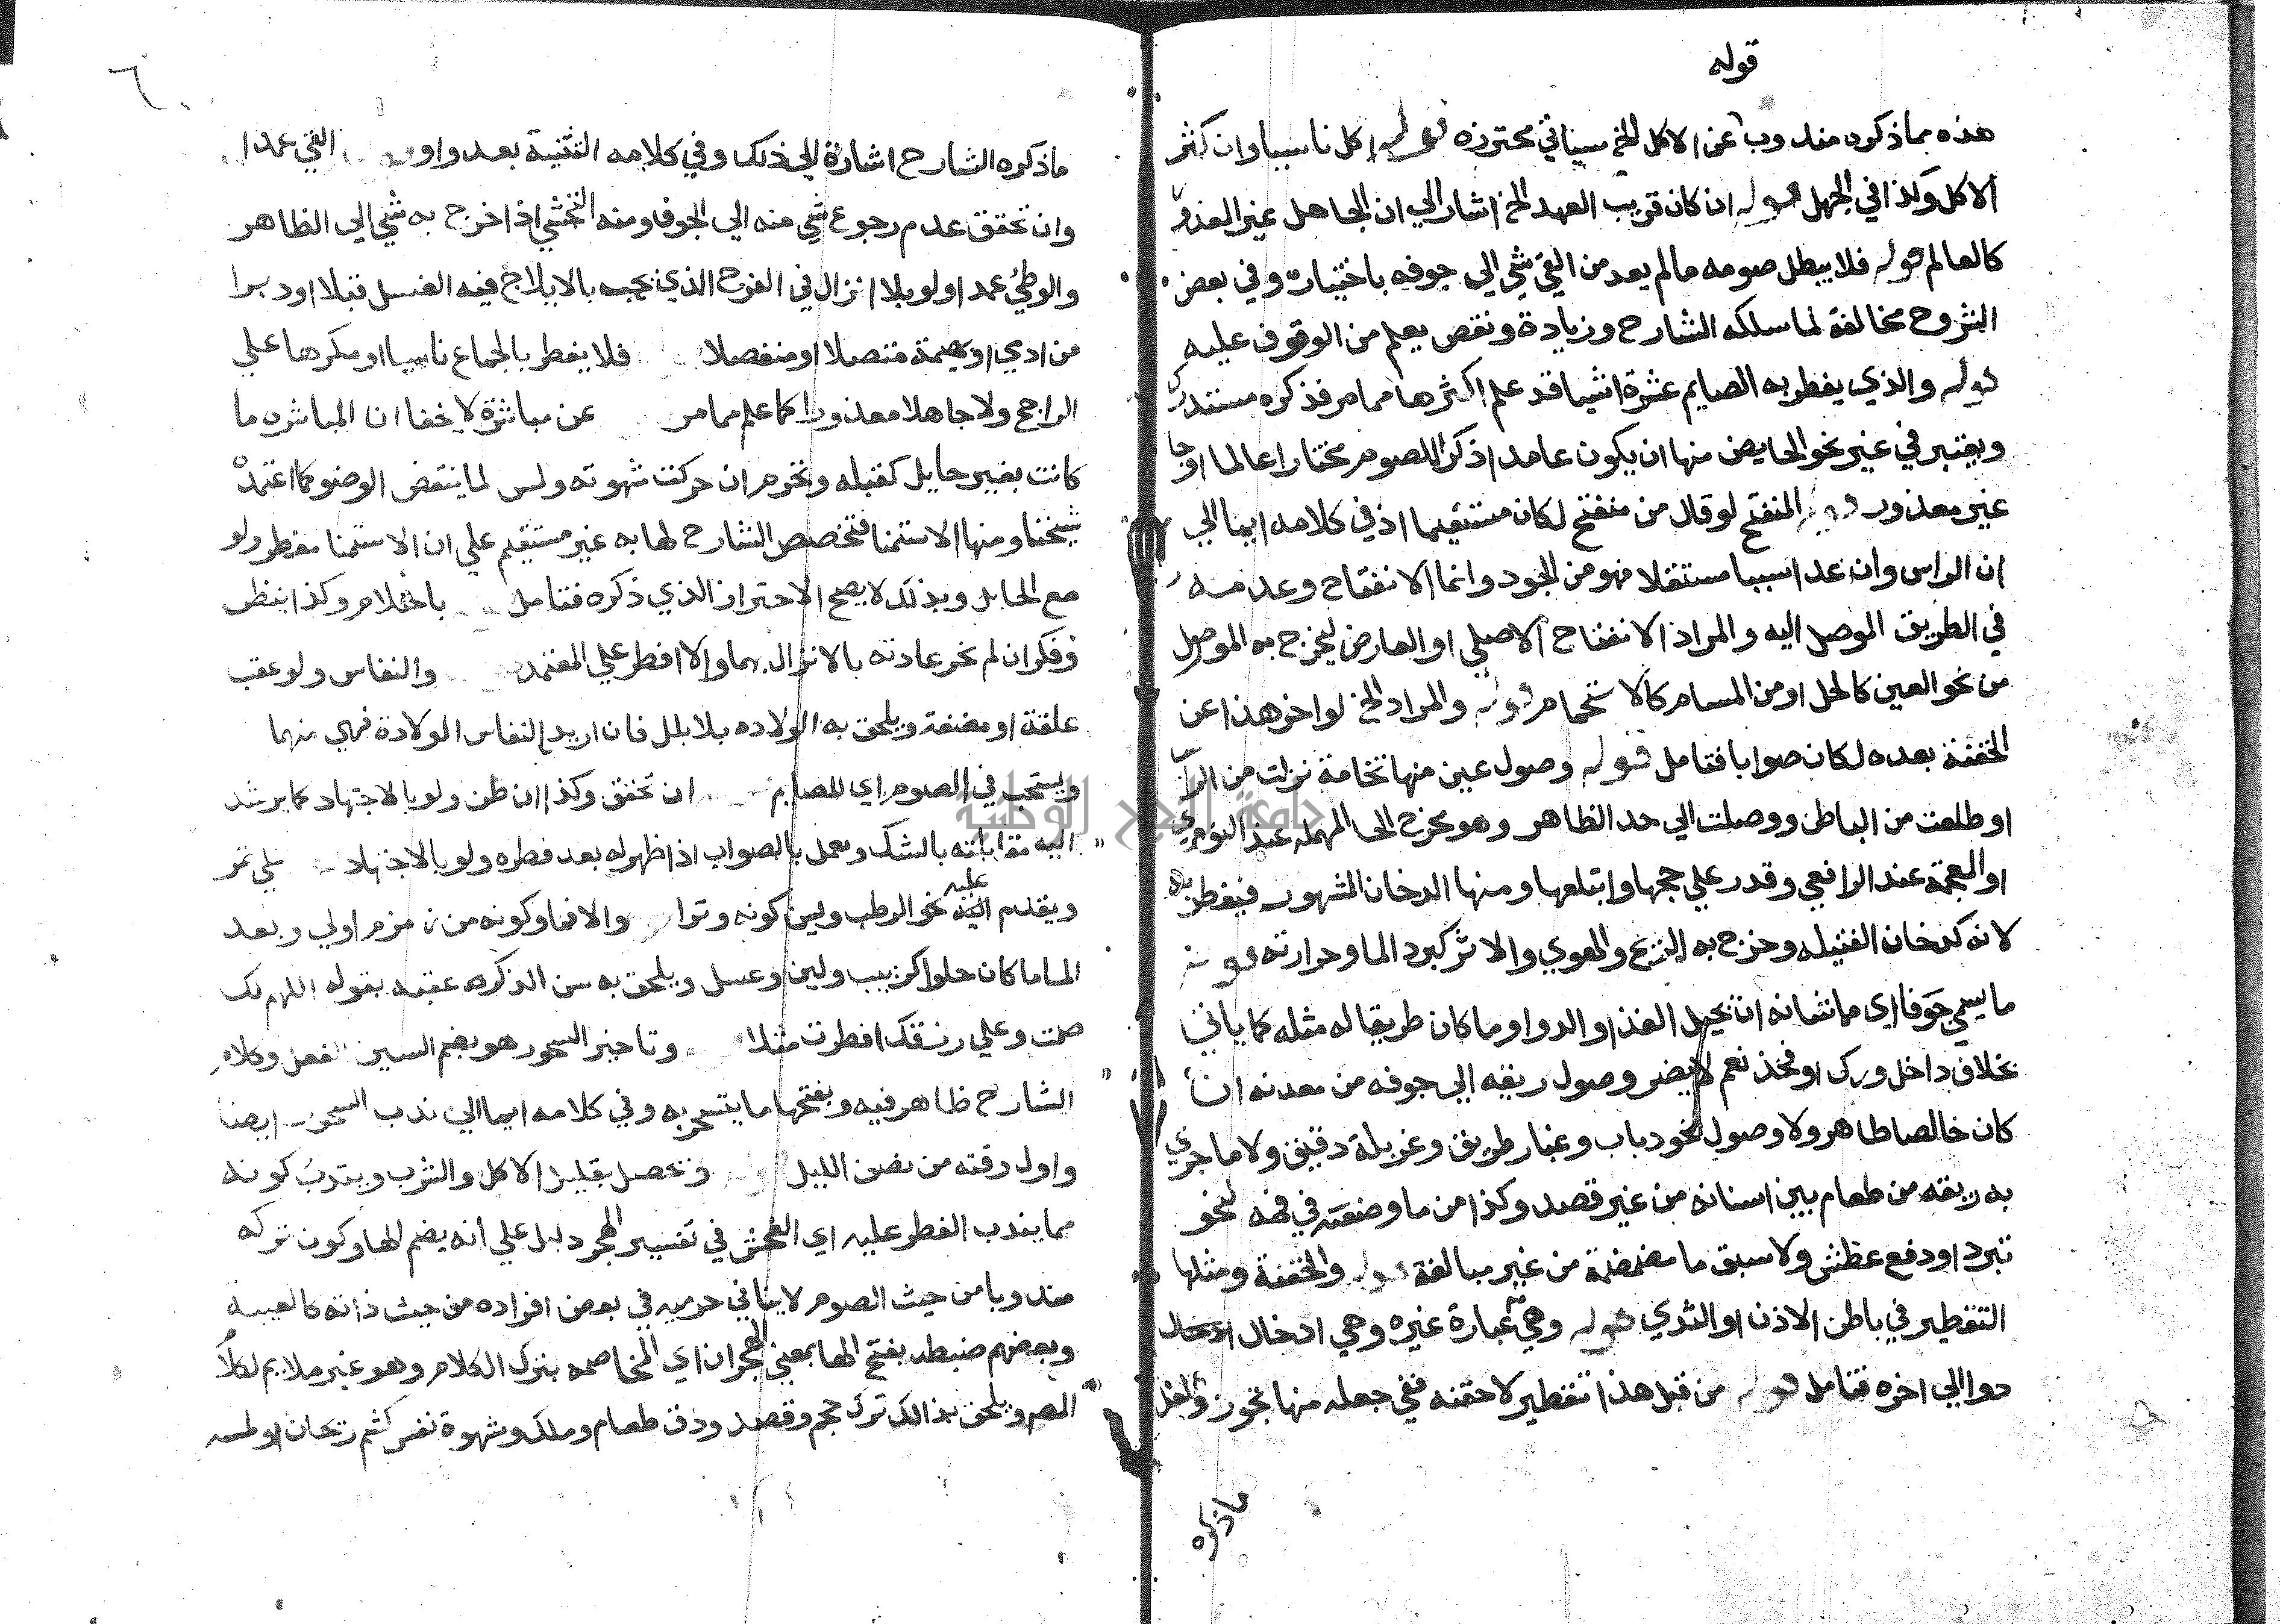 قوله
هذه بما ذكروه مندوب عن الاكل الخ سياتي محترزه قوله اكل ناسيا وان كثر
الاكل وكذا في الجهل قوله ان كان قريب العهد الخ اشار الي ان الجاهل غير المعذور
كالعالم قوله فلا يبطل صومه مالم يعد من القي شي الي جوفه باختياره وفي بعض
الشروح مخالفة لما سلكه الشارح وزيادة ونقص يعلم من الوقوف عليه
قوله والذي يفطر به الصايم عشرة اشيا قد علم اكثرها مما مر فذكره مستدرك
ويعتبر في غير نحو الحايض منها ان يكون عامدا ذكرا للصوم مختارا عالما او جا
غير معذور قوله المنفتح لو قال من منفتح لكان مستقيما اذ في كلامه ايما الي
ان الراس وان عد اسببا مستقلا فهو من الجود وانما الانفتاح وعدمه
في الطريق الموصل اليه والمراد الانفتاح الاصلي او العارض ليخرج به الموصل
من نحو العين كالكحل او من المسام كالاستحمام قوله والمراد الخ لو اخر هذا عن
الحقنة بعده لكان صوابا فتامل قوله وصول عين منها نخامة نزلت من الرا
او طلعت من الباطن ووصلت الي حد الظاهر وهو مخرج الحا المهملة عند النووي
او المعجمة عند الرافعي وقدر علي مجها وابتلعها ومنها الدخان المشهور فيفطر به
لانه كدخان الفتيله وخرج به الريح والهوي والاثر كبرد الما وحرارته قوله
ما يسمي جوفا اي مما شانه ان يحيل الغذا والدوا وما كان طريقا له مثله كما ياتي
بخلاف داخل ورك او فخذ نعم لا يضر وصول ريقه الي جوفه من معدنه ان
كان خالصا طاهرا ولا وصول نحو ذباب وغبار طريق وغربلة دقيق ولا ما جري
به ريقه من طعام بين اسنانه من غير قصد وكذا من ما وضعه في فمه لنحو
تبرد او دفع عطش ولا سبق ما مضمضة من غير مبالغة قوله والحقنة ومثلها
التقطير في باطن الاذن او الثدي قوله وهي عبارة غيره وهي ادخال
دوا الي اخره فتامل قوله من قبل هذا تقطير لا حقنه ففي جعله منها تجوز
ماذكره
٦
ماذكره الشارح اشارة الي ذلك وفي كلامه التثنية بعد واو القي عمدا
وان تحقق عدم رجوع شي منه الي الجوف ومنه التجشي اذا خرج به شي الي الظاهر
والوطي عمدا ولو بلا انزال في الفرج الذي يجب بالايلاج فيه الغسل قبلا او دبرا
من ادمي او بهيمة متصلا او منفصلا فلا يفطر بالجماع ناسيا او مكرها علي
الراجح ولا جاهلا معذورا كما علم مما مر عن مباشرة لا يخفا ان المباشره ما
كانت بغير حايل كقبله وتحرم ان حركت شهوته ولمس لما ينقض الوضو كما اعتمده
شيخنا ومنها الاستمنا فتخصيص الشارح لها به غير مستقيم علي ان الاستمنا مفطر ولو
مع الحايل وبذلك لا يصح الاحتراز الذي ذكره فتامل باحتلام وكذا بنظر
وفكر ان لم تجر عادته بالانزال بهما والا افطر علي المعتمد والنفاس ولو عقب
علقة او مضغة ويلحق به الولاده بلا بلل فان اريد بالنفاس الولادة فهي منهما
ويستحب في الصوم اي للصايم ان تحقق وكذا ان ظن ولو بالاجتهاد كما يرشد
اليه مقابلته بالشك ويعمل بالصواب اذا ظهر له بعد فطره ولو بالاجتهاد علي تمر
ويقدم عليه نحو الرطب وليس كونه وترا والا فما وكونه من زمزم اولي وبعد
الما ما كان حلوا كزبيب ولبن وعسل ويلحق به سن الذكر عقبه بقوله اللهم لك
صمت وعلي رزقك افطرت مثلا وتاخير السحور هو بضم السين الفعل وكلام
الشارح ظاهر فيه وبفتحها ما يتسحر به وفي كلامه ايما الي ندب السحور ايضا
واول وقته من نصف الليل ويحصل بقليل الاكل والشرب ويندب كونه
مما يندب الفطر عليه اي الفحش في تفسير الهجر دليل علي انه بضم الها وكون تركه
مندوبا من حيث الصوم لا ينافي حرمته في بعض افراده من حيث ذاته كالغيبة
وبعضهم ضبطه بفتح الها بمعني الهجران اي المخاصمه بترك الكلام وهو غير ملايم لكلام
المص ويلحق بذالك ترك حجم وقصد وذق طعام وعلك وشهوة نفس كشم ريحان او لمسه